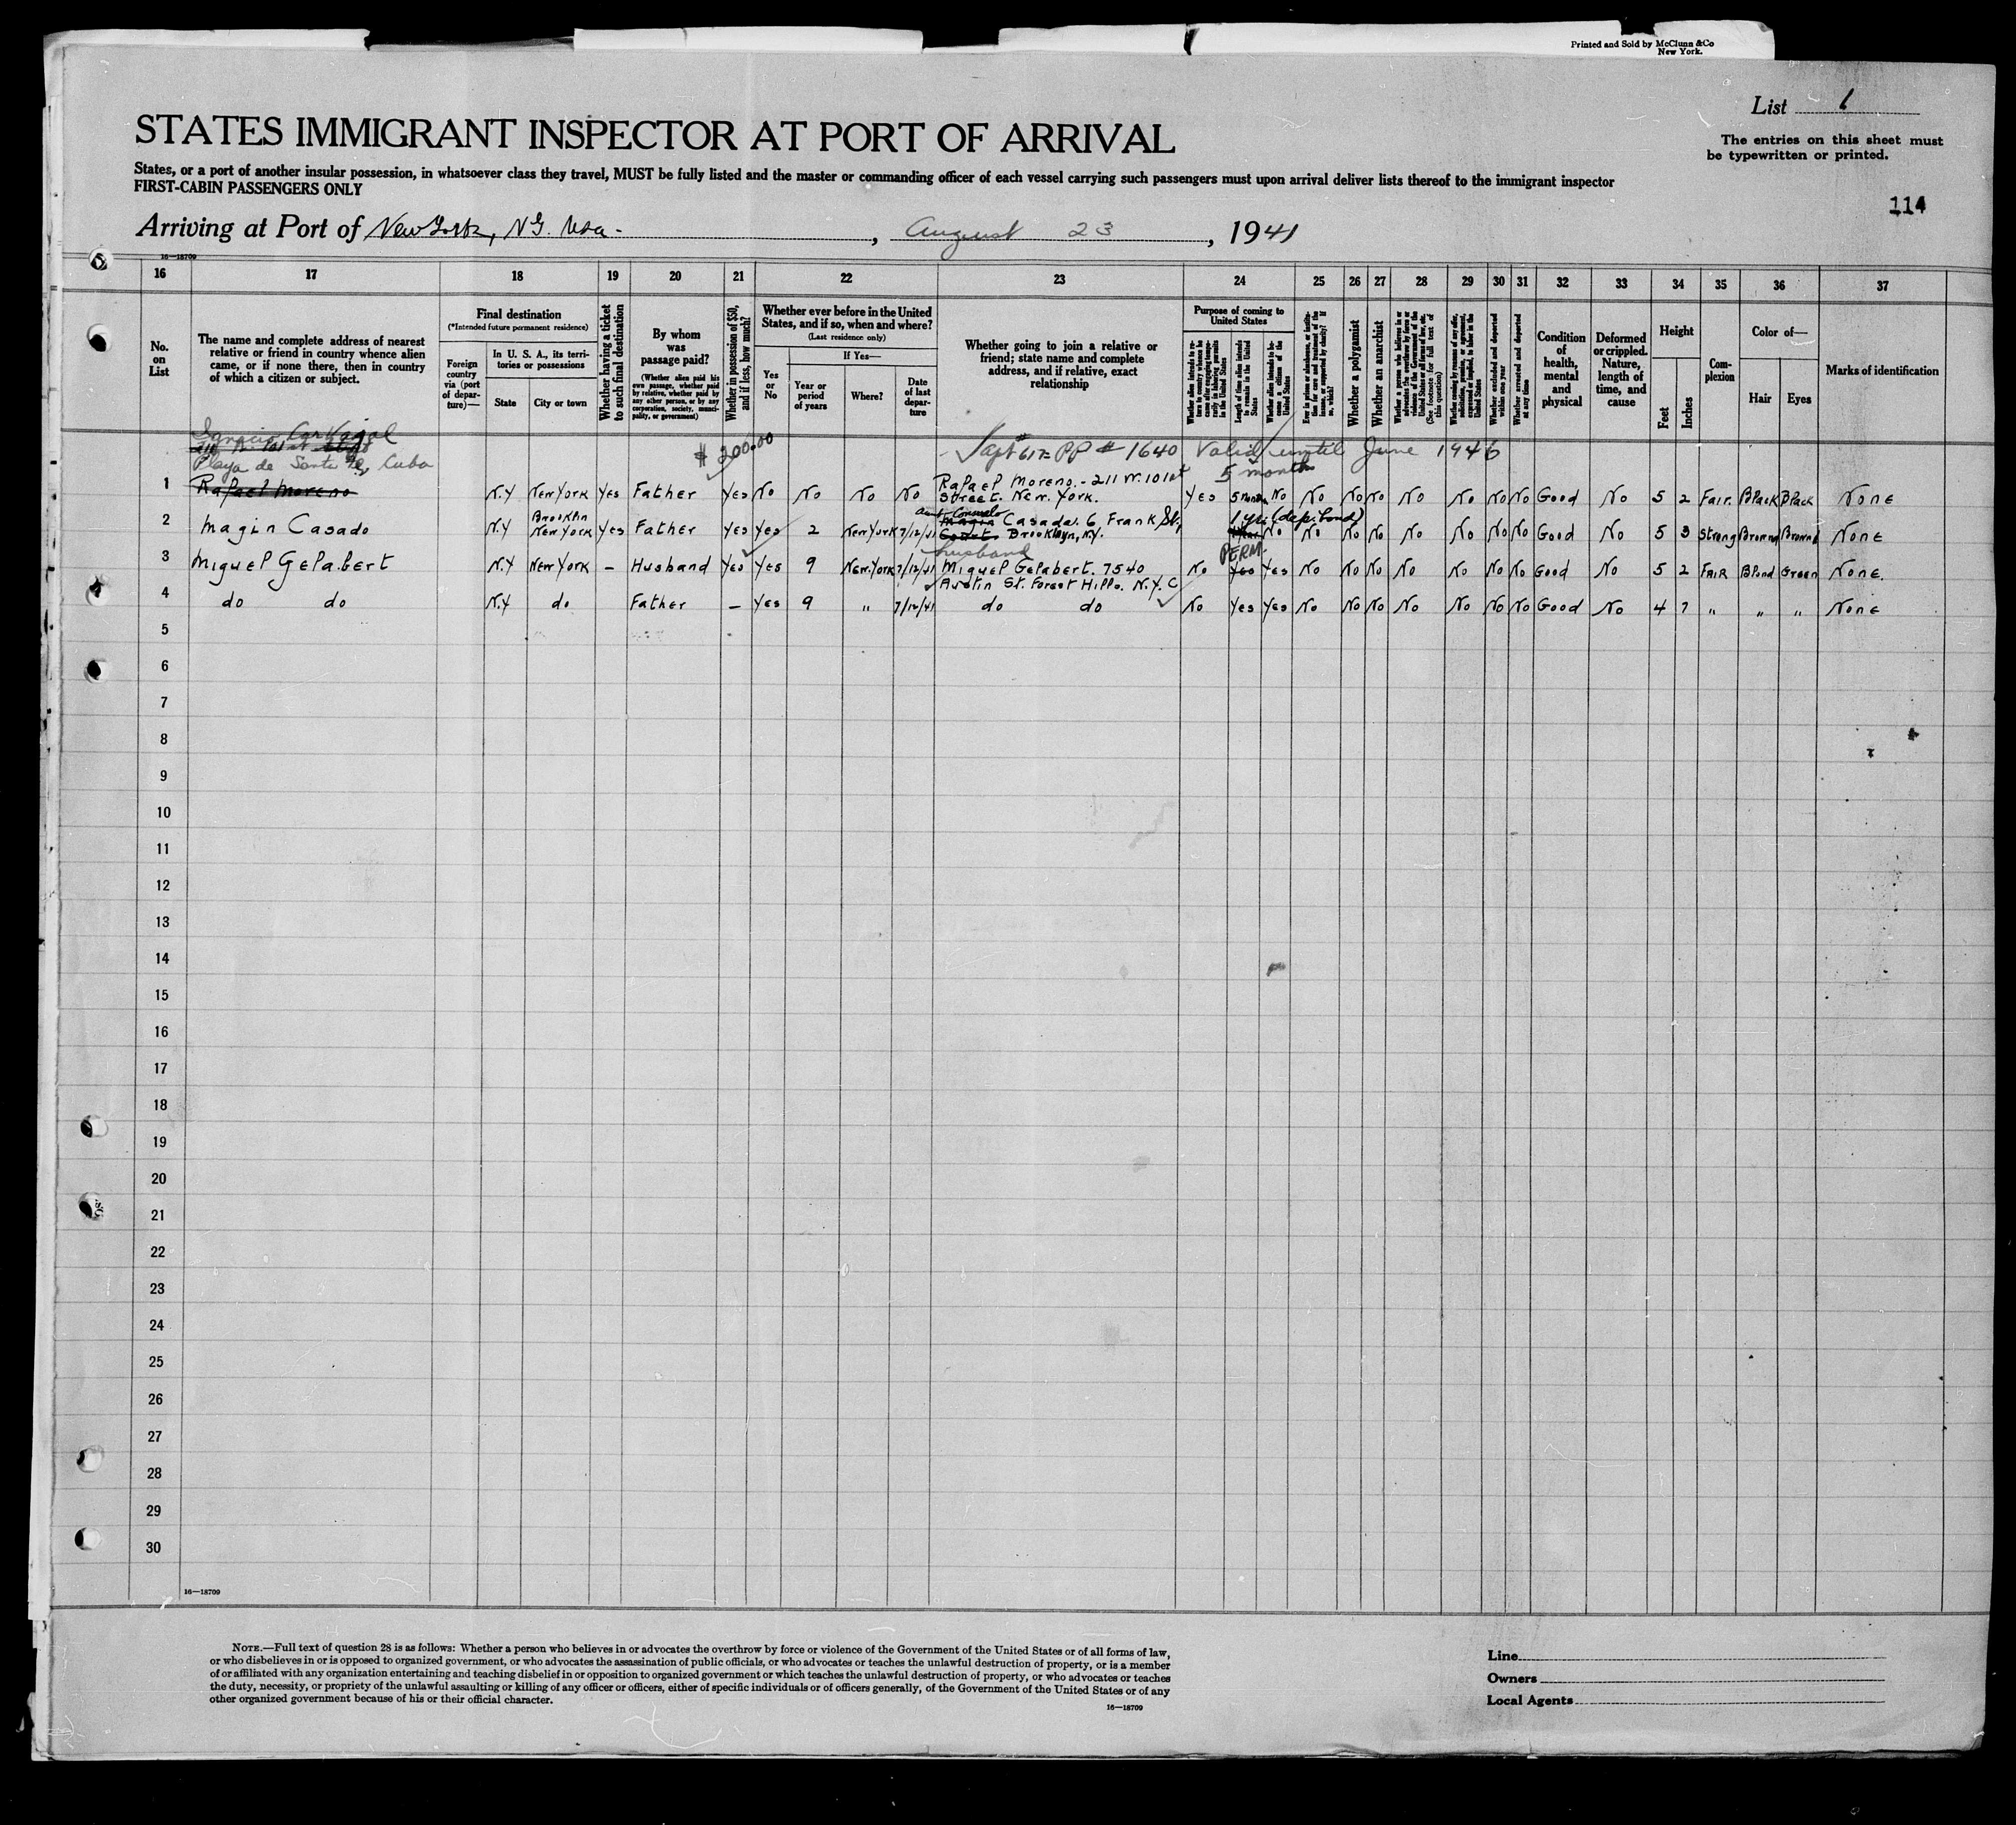 Printed and Sold by McClunn &Co
New York.
List 6
STATES IMMIGRANT INSPECTOR AT PORT OF ARRIVAL
The entries on this sheet must
be typewritten or printed.
States, or a port of another insular possession, in whatsoever class they travel, MUST be fully listed and the master or commanding officer of each vessel carrying such passengers must upon arrival deliver lists thereof to the immigrant inspector
FIRST-CABIN PASSENGERS ONLY
114
Arriving at Port of New York, N.Y. Usa- , August 23 , 1941
16—18709
16 17 18 19 20 21 22 23 24 25 26 27 28 29 30 31 32 33 34 35 36 37
No. on List
The name and complete address of nearest relative or friend in country whence alien came, or if none there, then in country of which a citizen or subject.
Final destination
(*Intended future permanent residence)
Foreign country via (port of departure)—
In U. S. A., its territories or possessions
State
City or town
Whether having a ticket to such final destination
By whom was passage paid?
(Whether alien paid his own passage, whether paid by relative, whether paid by any other person, or by any corporation, society, municipality, or government)
Whether in possession of $50, and if less, how much?
Whether ever before in the United States, and if so, when and where?
(Last residence only)
Yes or No
If Yes—
Year or period of years
Where?
Date of last departure
Whether going to join a relative or friend; state name and complete address, and if relative, exact relationship
Purpose of coming to United States
Whether alien intends to return to country whence he came after engaging temporarily in laboring pursuits in the United States
Length of time alien intends to remain in the United States
Whether alien intends to become a citizen of the United States
Ever in prison or almshouse, or institution for care and treatment of the insane, or supported by charity? If so, which?
Whether a polygamist
Whether an anarchist
Whether a person who believes in or advocates the overthrow by force or violence of the Government of the United States or all forms of law, etc. (See footnote for full text of this question)
Whether coming by reasons of any offer, solicitation, promise, or agreement, expressed or implied, to labor in the United States
Whether excluded and deported within one year
Whether arrested and deported at any time
Condition of health, mental and physical
Deformed or crippled. Nature, length of time, and cause
Height
Feet
Inches
Complexion
Color of—
Hair
Eyes
Marks of identification
Ignacio Carvajal
Playa de Santa Fe, Cuba
$ 200.00
PP # 1640 Valid until June 1946
5 months
1 Rafael Moreno N.Y New York Yes Father Yes No No No No Rafael Moreno.-211 W. 101st Street. New. York. Yes 5 Months No No No No No No No No Good No 5 2 Fair. Black Black None
Aunt Consuelo
1 yr. (dep. bond)
2 Magin Casado N.Y Brooklin New York Yes Father Yes Yes 2 New York 7/12/41 Magin Casado. 6 Frank St. Court. Brooklyn, N.Y. No No No No No No No No Good No 5 3 Strong Brownd Brownd None
husband
PERM.
3 Miguel Gelabert N.Y New York – Husband Yes Yes 9 New. York 7/12/41 Miguel Gelabert. 7540 Austin St. Forest Hills. N.Y.C No Yes Yes No No No No No No No Good No 5 2 FAIR Blond Green None.
4 do do N.Y do Father – Yes 9 " 7/12/41 do do No Yes Yes No No No No No No No Good No 4 7 " " " None
5
6
7
8
9
10
11
12
13
14
15
16
17
18
19
20
21
22
23
24
25
26
27
28
29
30
16—18709
NOTE.—Full text of question 28 is as follows: Whether a person who believes in or advocates the overthrow by force or violence of the Government of the United States or of all forms of law,
or who disbelieves in or is opposed to organized government, or who advocates the assassination of public officials, or who advocates or teaches the unlawful destruction of property, or is a member
of or affiliated with any organization entertaining and teaching disbelief in or opposition to organized government or which teaches the unlawful destruction of property, or who advocates or teaches
the duty, necessity, or propriety of the unlawful assaulting or killing of any officer or officers, either of specific individuals or of officers generally, of the Government of the United States or of any
other organized government because of his or their official character.
16—18709
Line
Owners
Local Agents